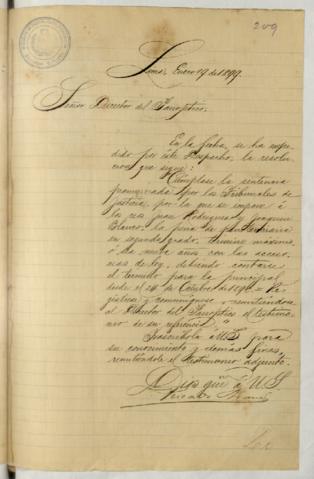 209
Lima, Enero 19 de 1899.
Señor Director del Panóptico.
En la fecha, se ha expe-
dido por este Despacho, la resolu-
cion que sigue:
"Cúmplase la sentencia
pronunciada por los Tribunales de
justicia, por la que se impone á
los reos Juan Rodriguez y Joaquin
Blanco, la pena de penitenciaria
en segundo grado, término máximo,
ó sea nueve años con las acceso-
rias de ley, debiendo contarse
el término para la principal
desde el 24 de Octubre de
gístrese y comuníquese remitiéndose
al Director del Panóptico el testimo-
nio de su referencia."
Trascríbola á US. para
su conocimiento y demás fines,
remitiéndole el testimonio adjunto.
Dios gue. á US.